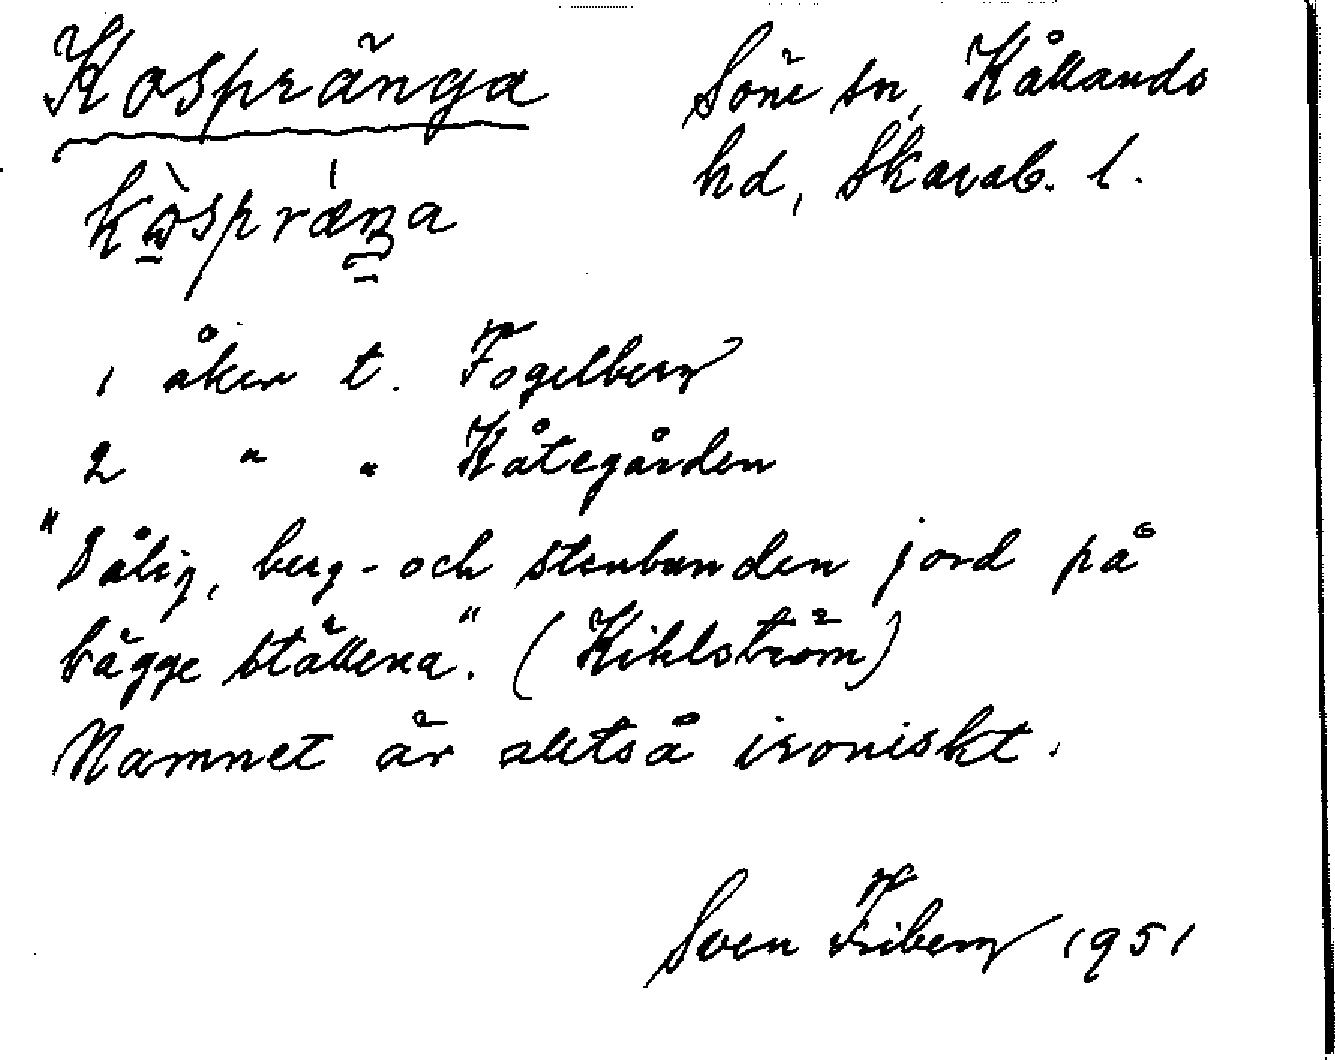 Kospränga
Söne sn, Kållands
hd, Skarab. l.
1 åker t. Fogelberg
2 " " Kåtegården
"Dålig, berg- och stenbunden jord på
bägge ställena". (Kihlström)
Namnet är alltså ironiskt.
Sven Friberg 1951